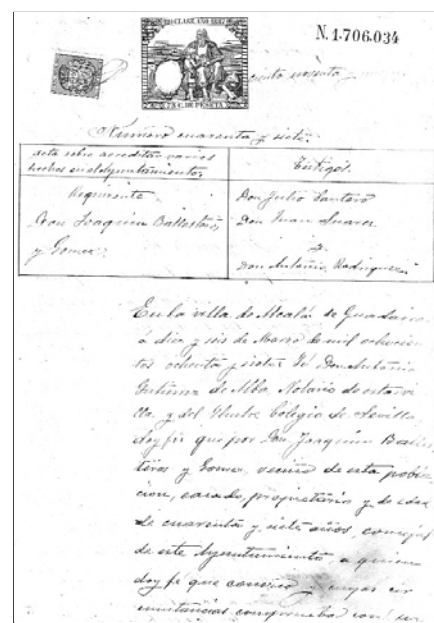 12ª CLASE AÑO 1887
N. 1.706.034
75 C. DE PESETA
ciento noventa y
Número cuarenta y siete.
Acta sobre acreditar varios
hechos en el Ayuntamiento.
Requirente
Don Joaquin Ballesteros
y Gomez.
Testigos.
Don Julio Cantero
Don Juan Suarez
y
Don Antonio Rodriguez
En la villa de Alcalá de Guadaira
á diez y seis de Marzo de mil ochocien
tos ochenta y siete: Yó Don Antonio
Gutierrez de Alba, Notario de esta vi
lla y del Ilustre Colegio de Sevilla
doy fé que por Don Joaquin Balles
teros y Gomez, vecino de esta pobla
cion, casado, propietario y de edad
de cuarenta y siete años, concejal
de este Ayuntamiento, a quien
doy fé que conozco y cuyas cir
cunstancias comprueba con su